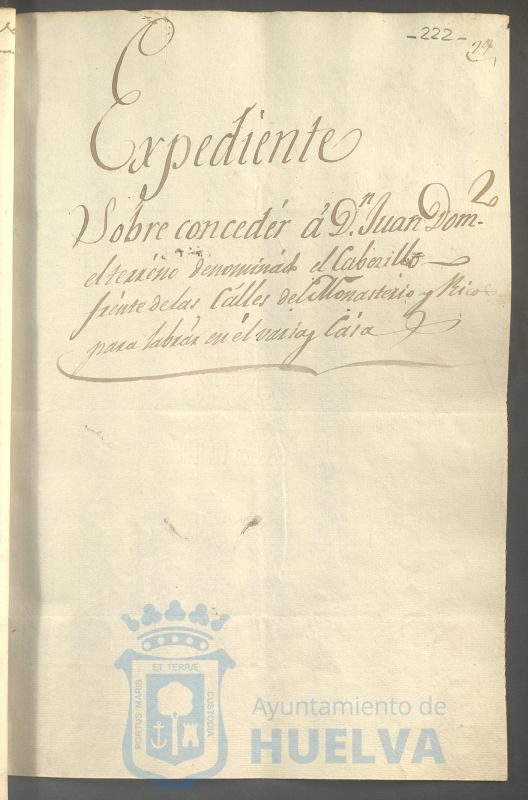 - 222 -
24
Expediente
Sobre concedér á D.n Juan Dom-z
el terréno denominado el Cabezillo
frénte de las Cálles del Monasterio y Rico
para labrár en él varias Cása
ET TERRÆ
PORTUS MARIS
CUSTODIA
Ayuntamiento de
HUELVA